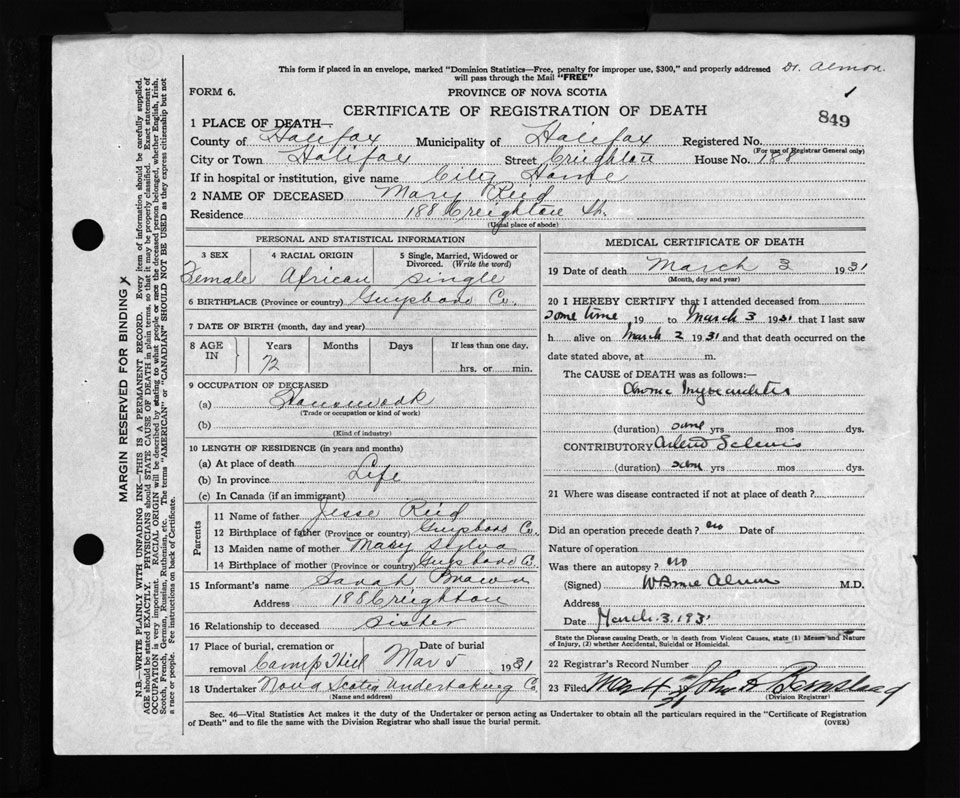 This form if placed in an envelope, marked "Dominion Statistics—Free, penalty for improper use, $300," and properly addressed Dr. Almon.
will pass through the Mail "FREE"
FORM 6. PROVINCE OF NOVA SCOTIA
CERTIFICATE OF REGISTRATION OF DEATH
849
1 PLACE OF DEATH—
County of Halifax Municipality of Halifax Registered No.
(For use of Registrar General only)
City or Town Halifax Street Creighton House No. 188
If in hospital or institution, give name City Home
2 NAME OF DECEASED Mary Reid
Residence 188 Creighton St.
(Usual place of abode)
PERSONAL AND STATISTICAL INFORMATION
3 SEX 4 RACIAL ORIGIN 5 Single, Married, Widowed or
Divorced. (Write the word)
Female African Single
6 BIRTHPLACE (Province or country) Guysboro Co.
7 DATE OF BIRTH (month, day and year)
8 AGE IN Years Months Days If less than one day,
72 hrs. or min.
9 OCCUPATION OF DECEASED
(a) Housework
(Trade or occupation or kind of work)
(b)
(Kind of industry)
10 LENGTH OF RESIDENCE (in years and months)
(a) At place of death
(b) In province Life
(c) In Canada (if an immigrant)
Parents
11 Name of father Jesse Reid
12 Birthplace of father (Province or country) Guysboro Co.
13 Maiden name of mother Mary Sylva
14 Birthplace of mother (Province or country) Guysboro Co.
15 Informant's name Sarah Brown
Address 188 Creighton
16 Relationship to deceased Sister
17 Place of burial, cremation or Date of burial
removal Camp Hill Mar 5 1931
18 Undertaker Nova Scotia Undertaking Co.
(Name and address)
MEDICAL CERTIFICATE OF DEATH
19 Date of death March 3 1931
(Month, day and year)
20 I HEREBY CERTIFY that I attended deceased from
some time 19 to March 3 1931 that I last saw
h alive on March 2 1931 and that death occurred on the
date stated above, at m.
The CAUSE OF DEATH was as follows:—
Chronic Myocarditis
(duration) some yrs mos dys.
CONTRIBUTORY
(duration) some yrs mos dys.
21 Where was disease contracted if not at place of death?
Did an operation precede death? no Date of
Nature of operation
Was there an autopsy? no
(Signed) W Bruce Almon M.D.
Address
Date March 3 1931
State the Disease causing Death, or in death from Violent Causes, state (1) Means and Nature
of Injury, (2) whether Accidental, Suicidal or Homicidal.
22 Registrar's Record Number
23 Filed Mar 4 John A
(Division Registrar)
Sec. 46—Vital Statistics Act makes it the duty of the Undertaker or person acting as Undertaker to obtain all the particulars required in the "Certificate of Registration
of Death" and to file the same with the Division Registrar who shall issue the burial permit. (OVER)
MARGIN RESERVED FOR BINDING
N.B.—WRITE PLAINLY WITH UNFADING INK—THIS IS A PERMANENT RECORD. Every item of information should be carefully supplied.
AGE should be stated EXACTLY. PHYSICIANS should STATE CAUSE OF DEATH in plain terms, so that it may be properly classified. Exact statement of
OCCUPATION is very important. RACIAL ORIGIN will be described by stating to what people or race the deceased person belonged, whether English, Irish,
Scotch, French, German, Russian, Ruthenian, etc. The terms "AMERICAN" or "CANADIAN" SHOULD NOT BE USED as they express citizenship but not
a race or people. Fee instructions on back of Certificate.